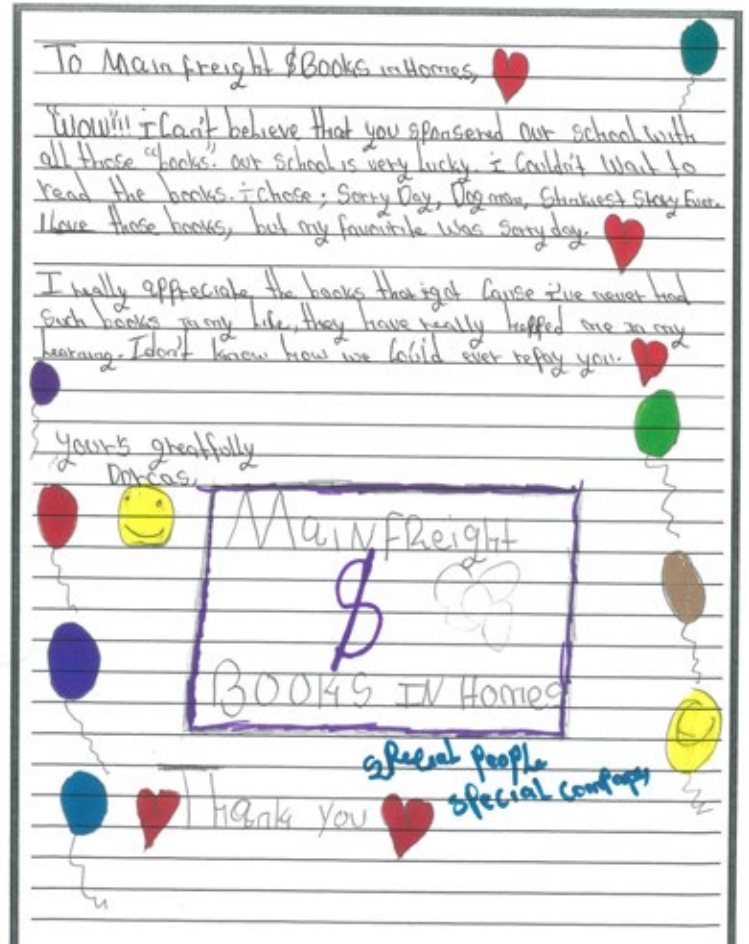 To Mainfreight $Books in Homes,
"Wow"!!! i Can't believe that you sponsered our school with
all those "books". our school is very lucky. i Couldn't Wait to
read the books. i chose ; Sorry Day, Dogman, Stinkiest Story Ever.
I Love those books, but my favourite Was Sorry day.
I really appreciate the books that i got Cause i've never had
Such books in my Life, they have really helped me in my
Learning. I don't know how we Could ever repay you.
Yours greatfully
Dorcas.
MainfReight
$
BOOKS IN Homes
special people
special company
Thank you